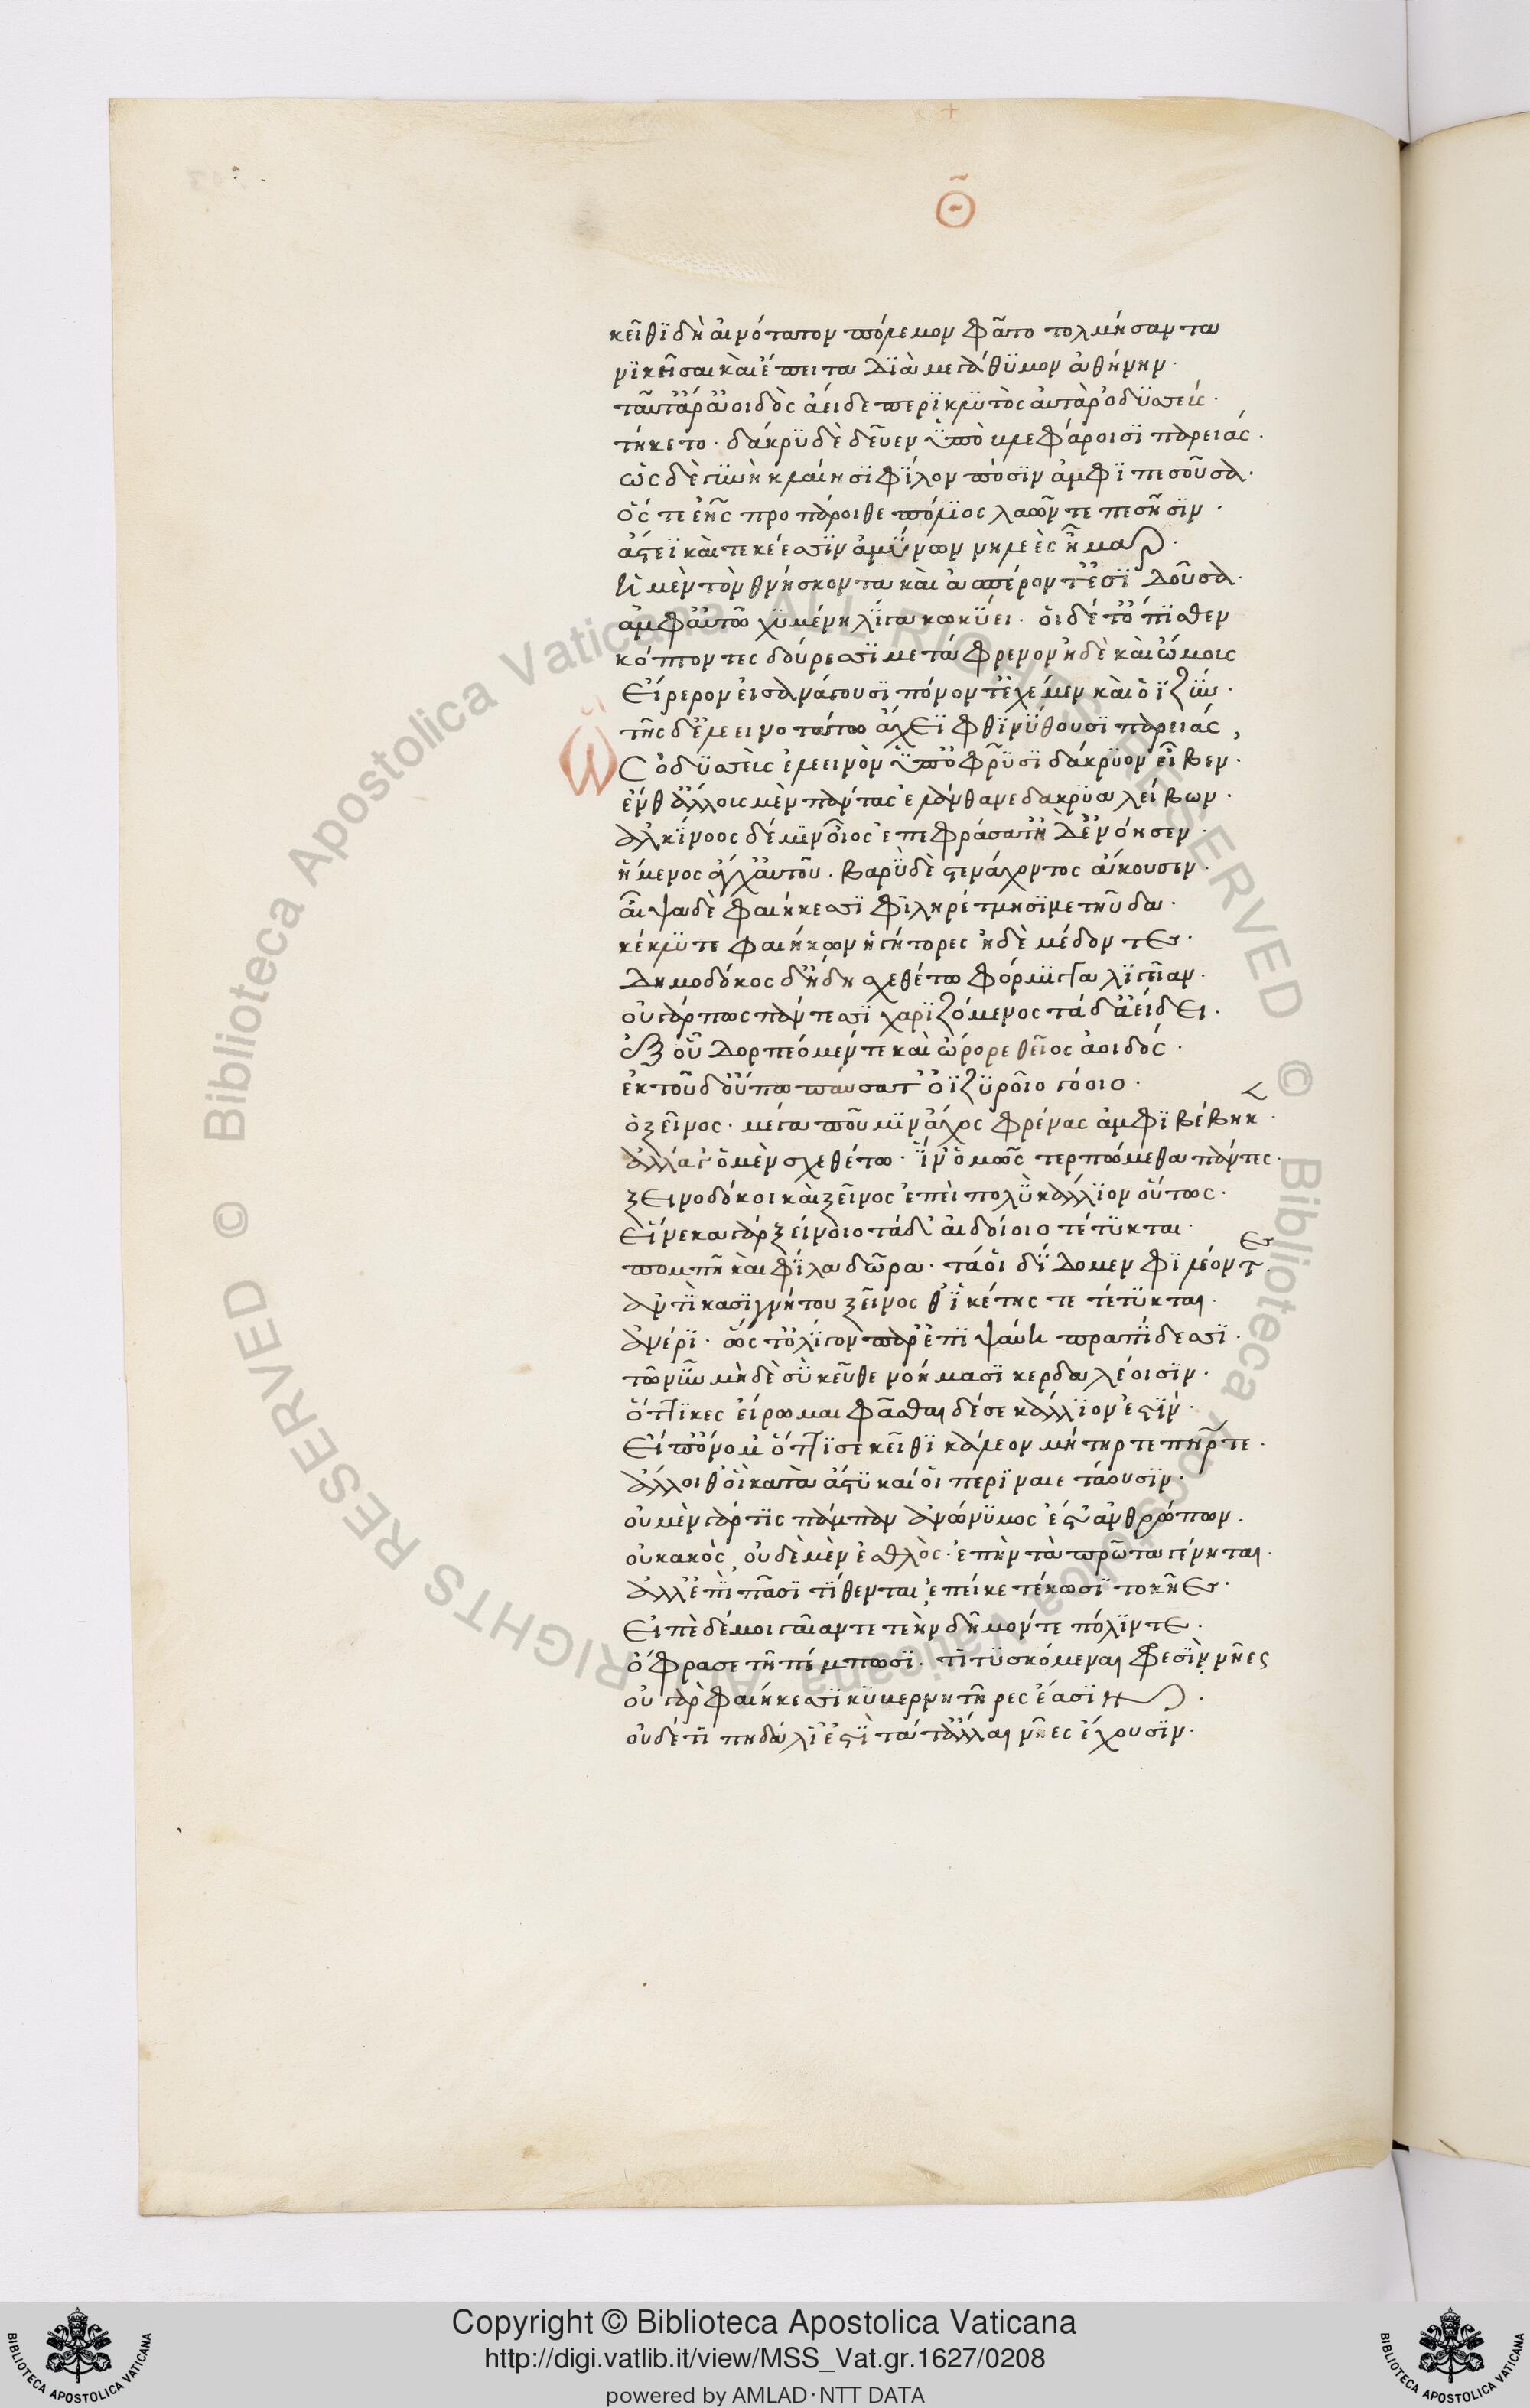 Θ
κεῖθι δὴ αἰνότατον πόλεμον φᾶτο τολμήσαντα
νικῆσαι καὶ ἔπειτα διὰ μεγάθυμον ἀθήνην.
ταῦτ' ἄρ' ἀοιδὸς ἄειδε περικλυτὸς αὐτὰρ ὀδυσσεύς.
τήκετο. δάκρυ δὲ δεῦεν ὑπὸ βλεφάροισι παρειάς.
ὡς δὲ γυνὴ κλαίῃσι φίλον πόσιν ἀμφιπεσοῦσα.
ὅς τε ἑῆς προπάροιθε πόλιος λαῶν τε πέσῃσιν.
ἄστεϊ καὶ τεκέεσσιν ἀμύνων νηλεὲς ἦμαρ.
ἡ μὲν τὸν θνήσκοντα καὶ ἀσπαίροντ' ἐσιδοῦσα.
ἀμφ' αὐτῷ χυμένη λίγα κωκύει. οἱ δέ τ' ὄπισθεν
κόπτοντες δούρεσσι μετάφρενον ἠδὲ καὶ ὤμους
εἴρερον εἰσανάγουσι πόνον τ' ἐχέμεν καὶ ὀϊζύν.
τῆς δ' ἐλεεινοτάτῳ ἄχεϊ φθινύθουσι παρειάς,
Ὣς ὀδυσεὺς ἐλεεινὸν ὑπ' ὀφρύσι δάκρυον εἶβεν.
ἔνθ' ἄλλους μὲν πάντας ἐλάνθανε δάκρυα λείβων.
ἀλκίνοος δέ μιν οἶος ἐπεφράσατ' ἠδ' ἐνόησεν.
ἥμενος ἄγχ' αὐτοῦ. βαρὺ δὲ στενάχοντος ἄκουσεν.
αἶψα δὲ φαιήκεσσι φιληρέτμοισι μετηύδα.
κέκλυτε φαιήκων ἡγήτορες ἠδὲ μέδοντες.
δημόδοκος δ' ἤδη σχεθέτω φόρμιγγα λίγειαν.
οὐ γάρ πως πάντεσσι χαριζόμενος τάδ' ἀείδει.
ἐξ οὗ δορπέομέν τε καὶ ὤρορε θεῖος ἀοιδός.
ἐκ τοῦδ' οὔπω παύσατ' ὀϊζυροῖο γόοιο.
ὁ ξεῖνος. μέγα που μιν ἄχος φρένας ἀμφιβέβηκ.
ἀλλ' ἄγ' ὁ μὲν σχεθέτω. ἵν' ὁμῶς τερπώμεθα πάντες.
ξεινοδόκοι καὶ ξεῖνος ἐπεὶ πολὺ κάλλιον οὕτως.
εἵνεκα γὰρ ξείνοιο τάδ' αἰδοίοιο τέτυκται.
πομπὴ καὶ φίλα δῶρα. τά οἱ δίδομεν φιλέοντες.
ἀντὶ κασιγνήτου ξεῖνος θ' ἱκέτης τε τέτυκται.
ἀνέρι. ὅς τ' ὀλίγον περ ἐπιψαύῃ πραπίδεσσι.
τῷ νῦν μηδὲ σὺ κεῦθε νοήμασι κερδαλέοισιν.
ὅττι κέ σ' εἴρωμαι φάσθαι δέ σε κάλλιον ἐστίν.
εἴπ' ὄνομ' ὅττι σε κεῖθι κάλεον μήτηρ τε πατήρ τε.
ἄλλοι θ' οἳ κατὰ ἄστυ καὶ οἳ περιναιετάουσιν.
οὐ μὲν γάρ τις πάμπαν ἀνώνυμος ἔστ' ἀνθρώπων.
οὐ κακὸς, οὐδὲ μὲν ἐσθλὸς. ἐπὴν ταπρῶτα γένηται.
ἀλλ' ἐπὶ πᾶσι τίθενται ἐπεί κε τέκωσι τοκῆες.
εἰπὲ δέ μοι γαῖάν τε τεὴν δῆμόν τε πόλιν τε.
ὄφρα σε τῇ πέμπωσι. τιτυσκόμεναι φρεσὶν νῆες
οὐ γὰρ φαιήκεσσι κυβερνητῆρες ἔασιν.
οὐδέ τι πηδάλι' ἐστὶ τά τ' ἄλλαι νῆες ἔχουσιν.
Copyright © Biblioteca Apostolica Vaticana
http://digi.vatlib.it/view/MSS_Vat.gr.1627/0208
powered by AMLAD·NTT DATA